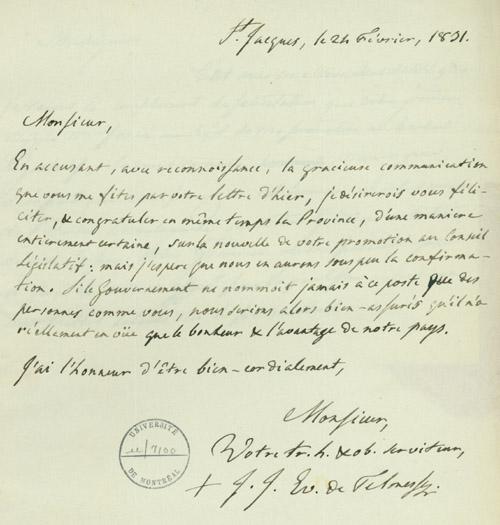 St. Jacques, le 24 Février, 1831.
Monsieur,
En accusant, avec reconnoissance, la gracieuse communication
que vous me fites par votre lettre d'hier, je désirerois vous féli-
citer, & congratuler en même temps la Province, d'une maniere
entièrement certaine, sur la nouvelle de votre promotion au Conseil
Législatif: mais j'espere que nous en aurons sous peu la confirma-
tion. Si le Gouvernement ne nommoit jamais à ce poste que des
personnes comme vous, nous serions alors bien-assurés qu'il n'a
réellement en vüe que le bonheur & l'avantage de notre pays.
J'ai l'honneur d'être bien-cordialement,
Monsieur,
Votre tr. h. & ob. serviteur,
+ J. J. Ev. de Telmesse
UNIVERSITÉ
DE MONTRÉAL